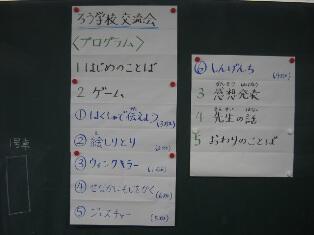 ろう学校交流会
〈プログラム〉
1 はじめのことば
2 ゲーム
① はくしゅで伝えよう
② 絵しりとり
③ ウィンクキラー
④ せなかにもじをかく
⑤ ジェスチャー
⑥ しんげんち
3 感想発表
4 先生の話
5 おわりのことば